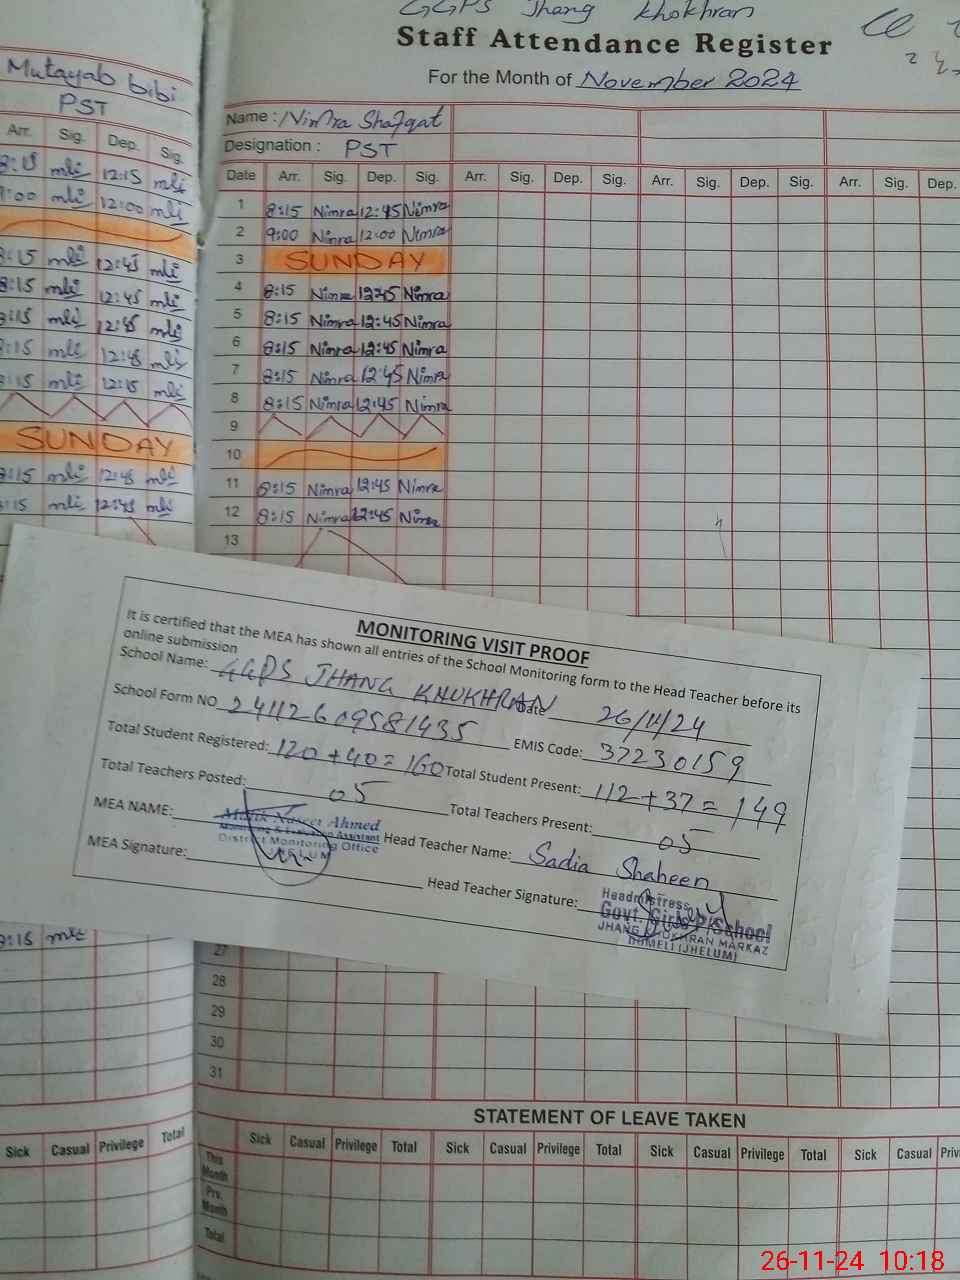 GGPS Jhang Khokhran
Staff Attendance Register
For the Month of November 2024
Mutayab bibi
PST
Arr. Sig. Dep. Sig.
8:15 mli 12:15 mli
9:00 mli 12:00 mli
8:15 mli 12:45 mli
8:15 mli 12:45 mli
8:15 mli 12:45 mli
8:15 mli 12:45 mli
8:15 mli 12:15 mli
SUNDAY
8:15 mli 12:45 mli
8:15 mli 12:45 mli
8:15 mli
Sick Casual Privilege Total
Name : Nimra Shafqat
Designation : PST
Date Arr. Sig. Dep. Sig. Arr. Sig. Dep. Sig. Arr. Sig. Dep. Sig. Arr. Sig. Dep.
1 8:15 Nimra 12:45 Nimra
2 9:00 Nimra 12:00 Nimra
3 SUNDAY
4 8:15 Nimra 12:45 Nimra
5 8:15 Nimra 12:45 Nimra
6 8:15 Nimra 12:45 Nimra
7 8:15 Nimra 12:45 Nimra
8 8:15 Nimra 12:45 Nimra
9
10
11 8:15 Nimra 12:45 Nimra
12 8:15 Nimra 12:45 Nimra
13
MONITORING VISIT PROOF
It is certified that the MEA has shown all entries of the School Monitoring form to the Head Teacher before its
online submission
School Name: GGPS JHANG KHUKHRAN Date 26/11/24
School Form NO 24112609581435 EMIS Code: 37230159
Total Student Registered: 120+40=160 Total Student Present: 112+37=149
Total Teachers Posted: 05 Total Teachers Present: 05
MEA NAME: Malik Naseer Ahmed Head Teacher Name: Sadia Shaheen
Monitoring & Evaluation Assistant
District Monitoring Office
JHELUM
MEA Signature: Head Teacher Signature:
Headmistress
Govt. Girls P/School
JHANG KHOKHRAN MARKAZ
DOMELI (JHELUM)
27
28
29
30
31
STATEMENT OF LEAVE TAKEN
Sick Casual Privilege Total Sick Casual Privilege Total Sick Casual Privilege Total Sick Casual Privi
This Month
Prv. Month
Total
26-11-24 10:18